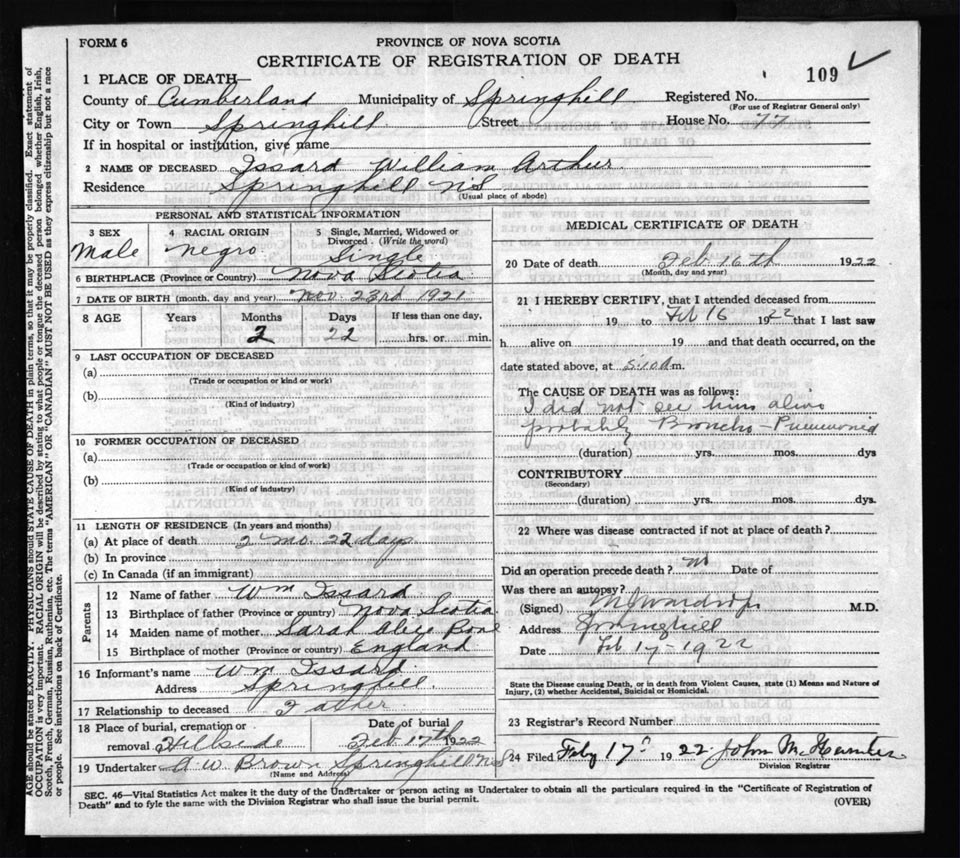 FORM 6
PROVINCE OF NOVA SCOTIA
CERTIFICATE OF REGISTRATION OF DEATH
109
1 PLACE OF DEATH—
County of Cumberland Municipality of Springhill Registered No.
(For use of Registrar General only)
City or Town Springhill Street House No. 77
If in hospital or institution, give name
2 NAME OF DECEASED Issard William Arthur
Residence Springhill NS
(Usual place of abode)
PERSONAL AND STATISTICAL INFORMATION
3 SEX 4 RACIAL ORIGIN 5 Single, Married, Widowed or Divorced. (Write the word)
Male negro Single
6 BIRTHPLACE (Province or Country) Nova Scotia
7 DATE OF BIRTH (month, day and year) Nov. 23rd 1921
8 AGE Years Months Days If less than one day,
2 22 hrs. or min.
9 LAST OCCUPATION OF DECEASED
(a)
(Trade or occupation or kind or work)
(b)
(Kind of industry)
10 FORMER OCCUPATION OF DECEASED
(a)
(Trade or occupation or kind or work)
(b)
(Kind of industry)
11 LENGTH OF RESIDENCE (In years and months)
(a) At place of death 2 mo. 22 days
(b) In province
(c) In Canada (if an immigrant)
Parents
12 Name of father Wm Issard
13 Birthplace of father (Province or country) Nova Scotia
14 Maiden name of mother Sarah Alice
15 Birthplace of mother (Province or country) England
16 Informant's name Wm Issard
Address Springhill
17 Relationship to deceased Father
18 Place of burial, cremation or Date of burial
removal Hillside Feb 17th 1922
19 Undertaker A W Brown Springhill NS
(Name and Address)
MEDICAL CERTIFICATE OF DEATH
20 Date of death Feb 16th 1922
(Month, day and year)
21 I HEREBY CERTIFY, that I attended deceased from
19 to Feb 16 1922 that I last saw
h alive on 19 and that death occurred, on
date stated above, at m.
The CAUSE OF DEATH was as follows:
I did not see him alive
probably Broncho-Pneumonia
(duration) yrs. mos. dys
CONTRIBUTORY
(Secondary)
(duration) yrs. mos. dys.
22 Where was disease contracted if not at place of death?
Did an operation precede death? no Date of
Was there an autopsy?
(Signed) M.D.
Address Springhill
Date Feb 17-1922
State the Disease causing Death, or in death from Violent Causes, state (1) Means and Nature of
Injury, (2) whether Accidental, Suicidal or Homicidal.
23 Registrar's Record Number
24 Filed 17 1922. John
Division Registrar
SEC. 46—Vital Statistics Act makes it the duty of the Undertaker or person acting as Undertaker to obtain all the particulars required in the "Certificate of Registration of
Death" and to fyle the same with the Division Registrar who shall issue the burial permit. (OVER)
AGE should be stated EXACTLY. PHYSICIANS should STATE CAUSE OF DEATH in plain terms, so that it may be properly classified. Exact statement of
OCCUPATION is very important. RACIAL ORIGIN will be described by stating to what people or tongue the deceased person belonged whether English, Irish,
Scotch, French, German, Russian, Ruthenian, etc. The terms "AMERICAN" OR "CANADIAN" MUST NOT BE USED as they express citizenship but not a race
or people. See instructions on back of Certificate.